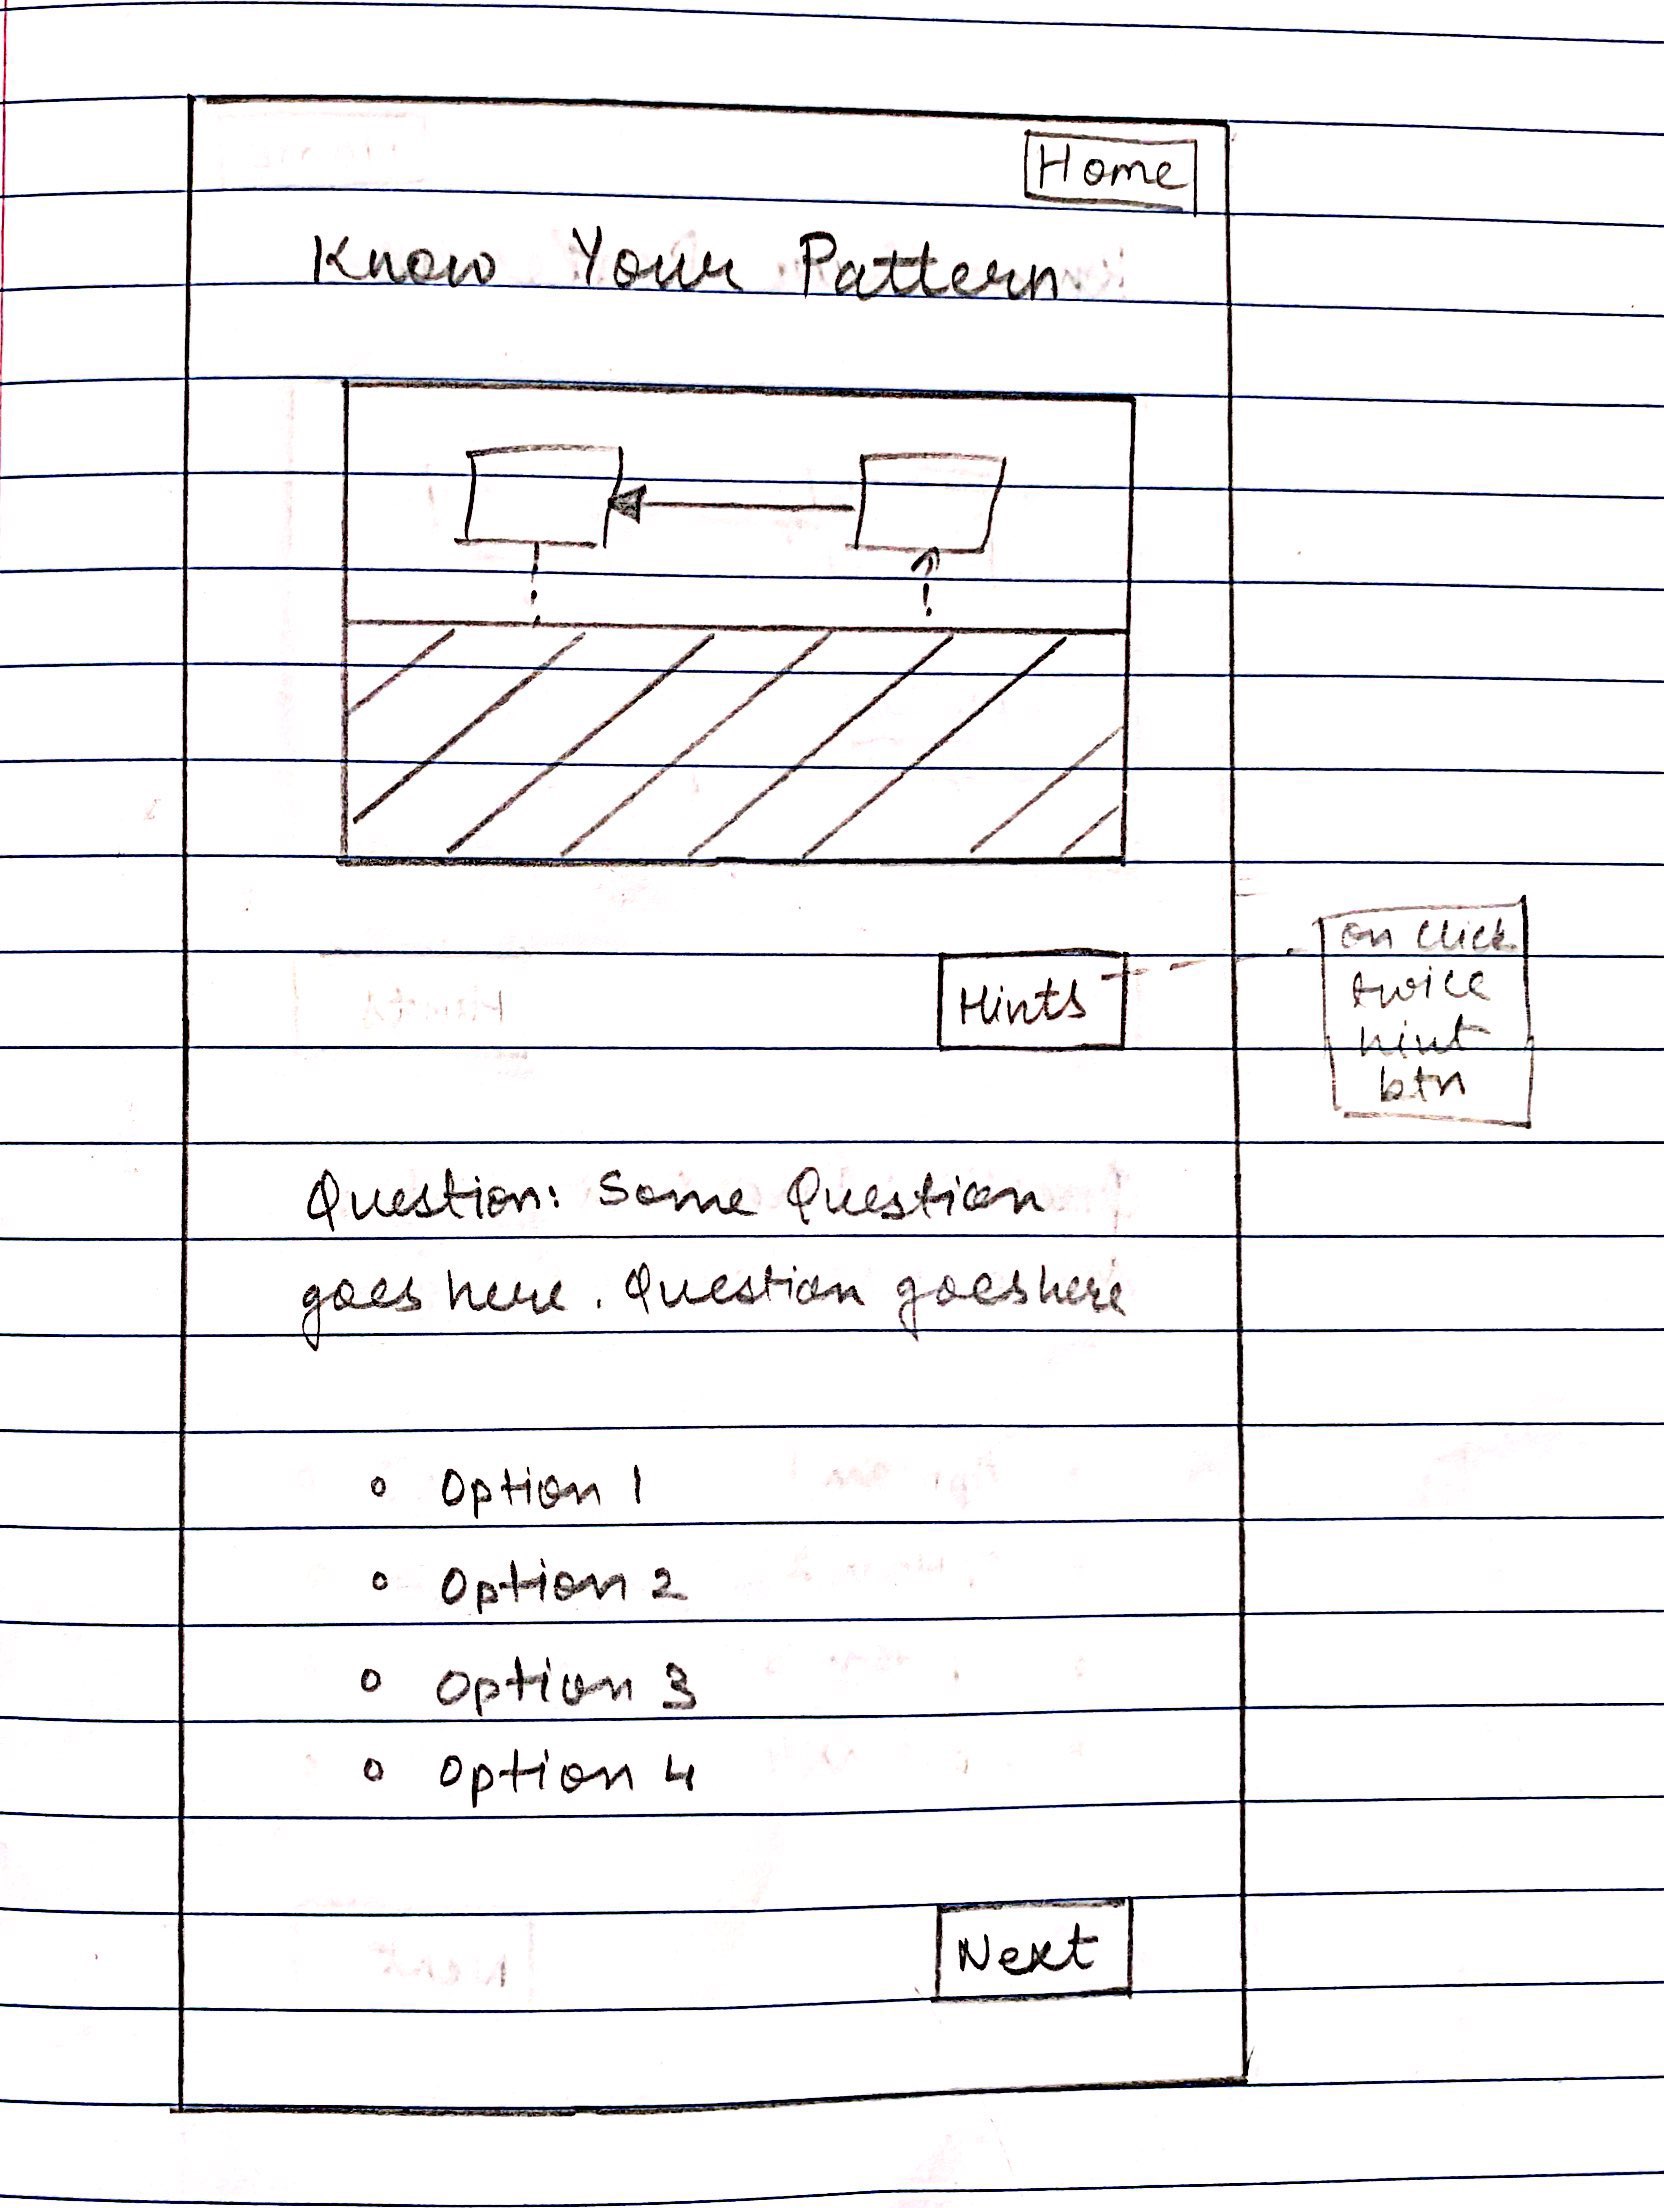 Home
Know Your Pattern
Hints
on click
twice
hint
btn
Question: Some Question
goes here. Question goes here
Option 1
Option 2
Option 3
Option 4
Next